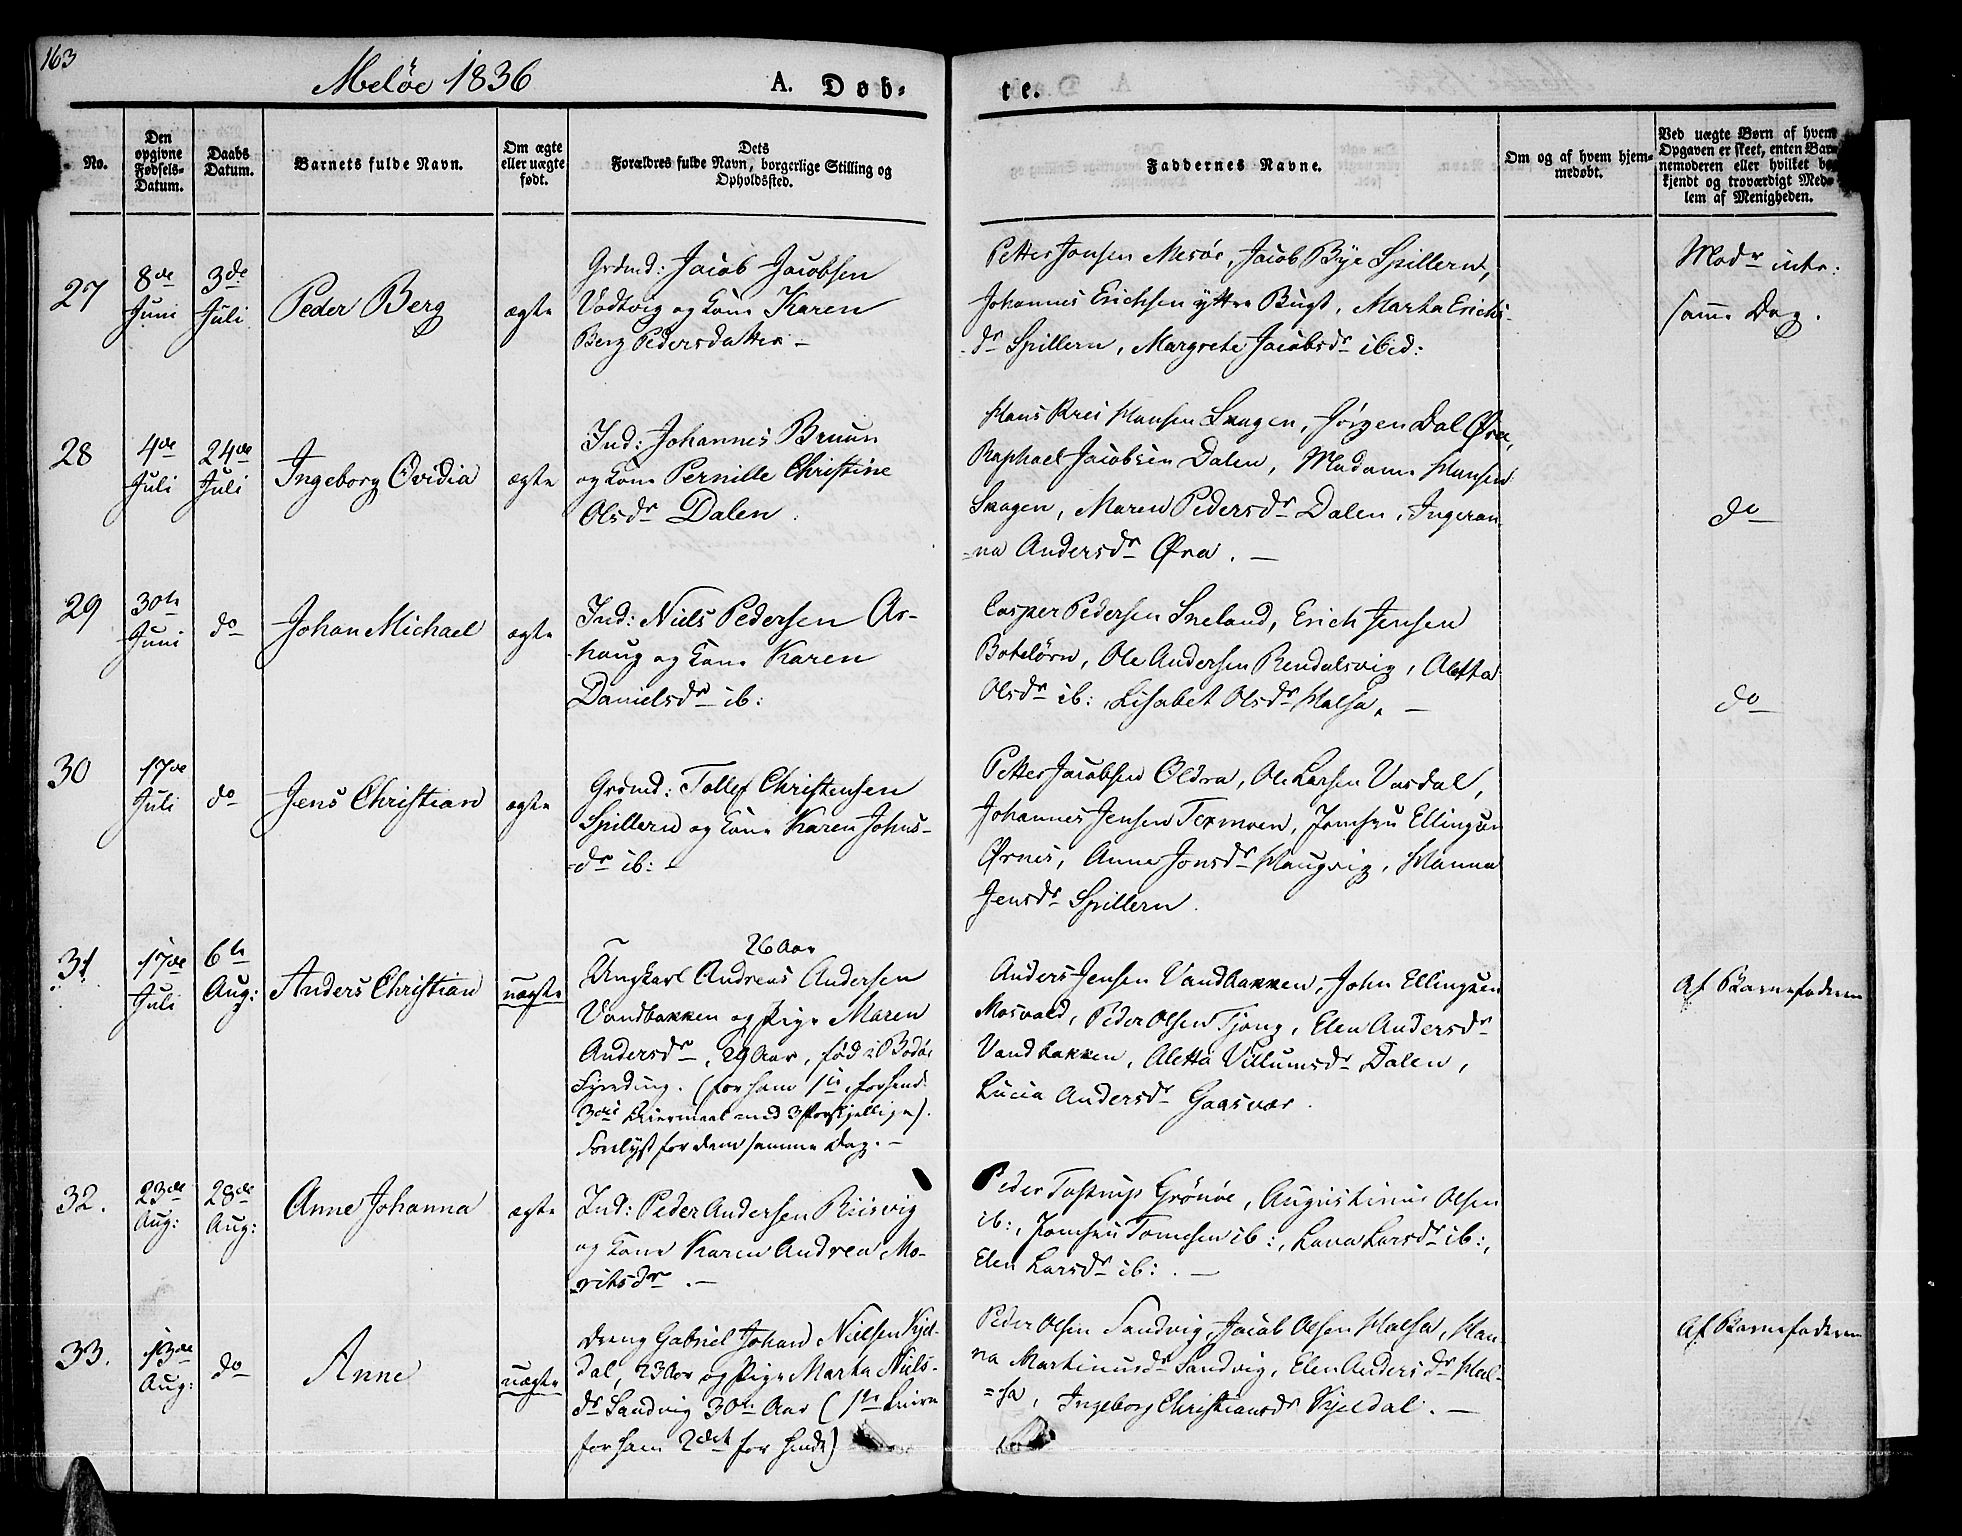 163
Meløe 1836
A. Døb-
te.
No.
Den
opgivne
Fødsels-
Datum.
Daabs
Datum.
Barnets fulde Navn.
Om ægte
eller uægte
født.
Dets
Forældres fulde Navn, borgerlige Stilling og
Opholdssted.
Faddernes Navne.
Om og af hvem hjem-
medøbt.
Ved uægte Børn af hvem
Opgaven er skeet, enten Bar-
nemoderen eller hvilket be-
kjendt og troværdigt Med-
lem af Menigheden.
27
8de
Juni
3de
Juli
Peder Berg
ægte
Grdmd: Jacob Jacobsen
Vadtvig og Kone Karen
Berg Pedersdatter -
Petter Jonsen Mesøe, Jacob Bye Spillern,
Johannes Erichsen yttre Bugt, Marha Erichs-
-dr Spillern, Margrete Jacobsdr ibid:
Modr intr:
samme Dag.
28
4de
Juli
24de
Juli
Ingeborg Ovidia
ægte
Ind: Johannes Bruun
og Kone Pernille Christine
Olsdr Dalen.
Hans Hansen Skagen, Jørgen Dal Øra,
Raphael Jacobsen Dalen, Madame Hansen
Skagen, Maren Pedersdr Dalen, Ingeran
=na Andersdr Øra. -
do
29
30te
Juni
do
Johan Michael
ægte
Ind: Niels Pedersen Ar-
-haug og Kone Karen
Danielsdr ib:
Casper Pedersen Sneland, Erich Jensen
Botelørn, Ole Andersen Rendalsvig, Aletta
Olsdr ib:, Lisabet Olsdr Halsa. -
do
30
17de
Juli
do
Jens Christian
ægte
Grdmd: Tollef Christensen
Spillern og Kone Karen Johns-
=dr ib: -
Petter Jacobsen Oldra, Ole Larsen Vasdal,
Johannes Jensen Termoen, Jomfru Ellingsen
Ørnes, Anne Jonsdr Haugvig, Hanna
Jensdr Spillern.
31
17de
Juli
6te
Aug:
Anders Christian
uægte
26 Aar
Ungkarl Andreas Andersen
Vandbakken og Pige Maren
Andersdr, 29 Aar, fød i Bodøe
Fjerding. (for ham 1ste, for hend:
3die Leiermaal med 3 forskjellige).
for dem samme Dag. -
Anders Jensen Vandbakken, John Ellingsen
Mosvold, Peder Olsen Tjong, Elen Andersdr
Vandbakken, Aletta Villumsdr Dalen,
Lucia Andersdr Gaasvær.
Af Barnefaderen
32.
23de
Aug:
28de
Aug:
Anne Johanna
ægte
Ind: Peder Andersen Riisvig
og Kone Karen Andrea Mo-
=ritsdr. -
Peder Tostrup Grønøe, Augustinus Olsen
ib:, Jomfru Tomesen ib:, Lava Larsdr ib:,
Elen Larsdr ib:. -
33.
13de
Aug:
do
Anne
uægte
Dreng Gabriel Johan Nielsen Kjel-
dal, 23 Aar og Pige Marha Niels-
dr Sandvig 30te Aar (1ste
for ham 2det for hende)
Peder Olsen Sandvig, Jacob Olsen Halsa, Han-
na Martinusdr Sandvig, Elen Andersdr Hal-
=sa, Ingeborg Christiansdr Kjeldal. -
Af Barnefaderen